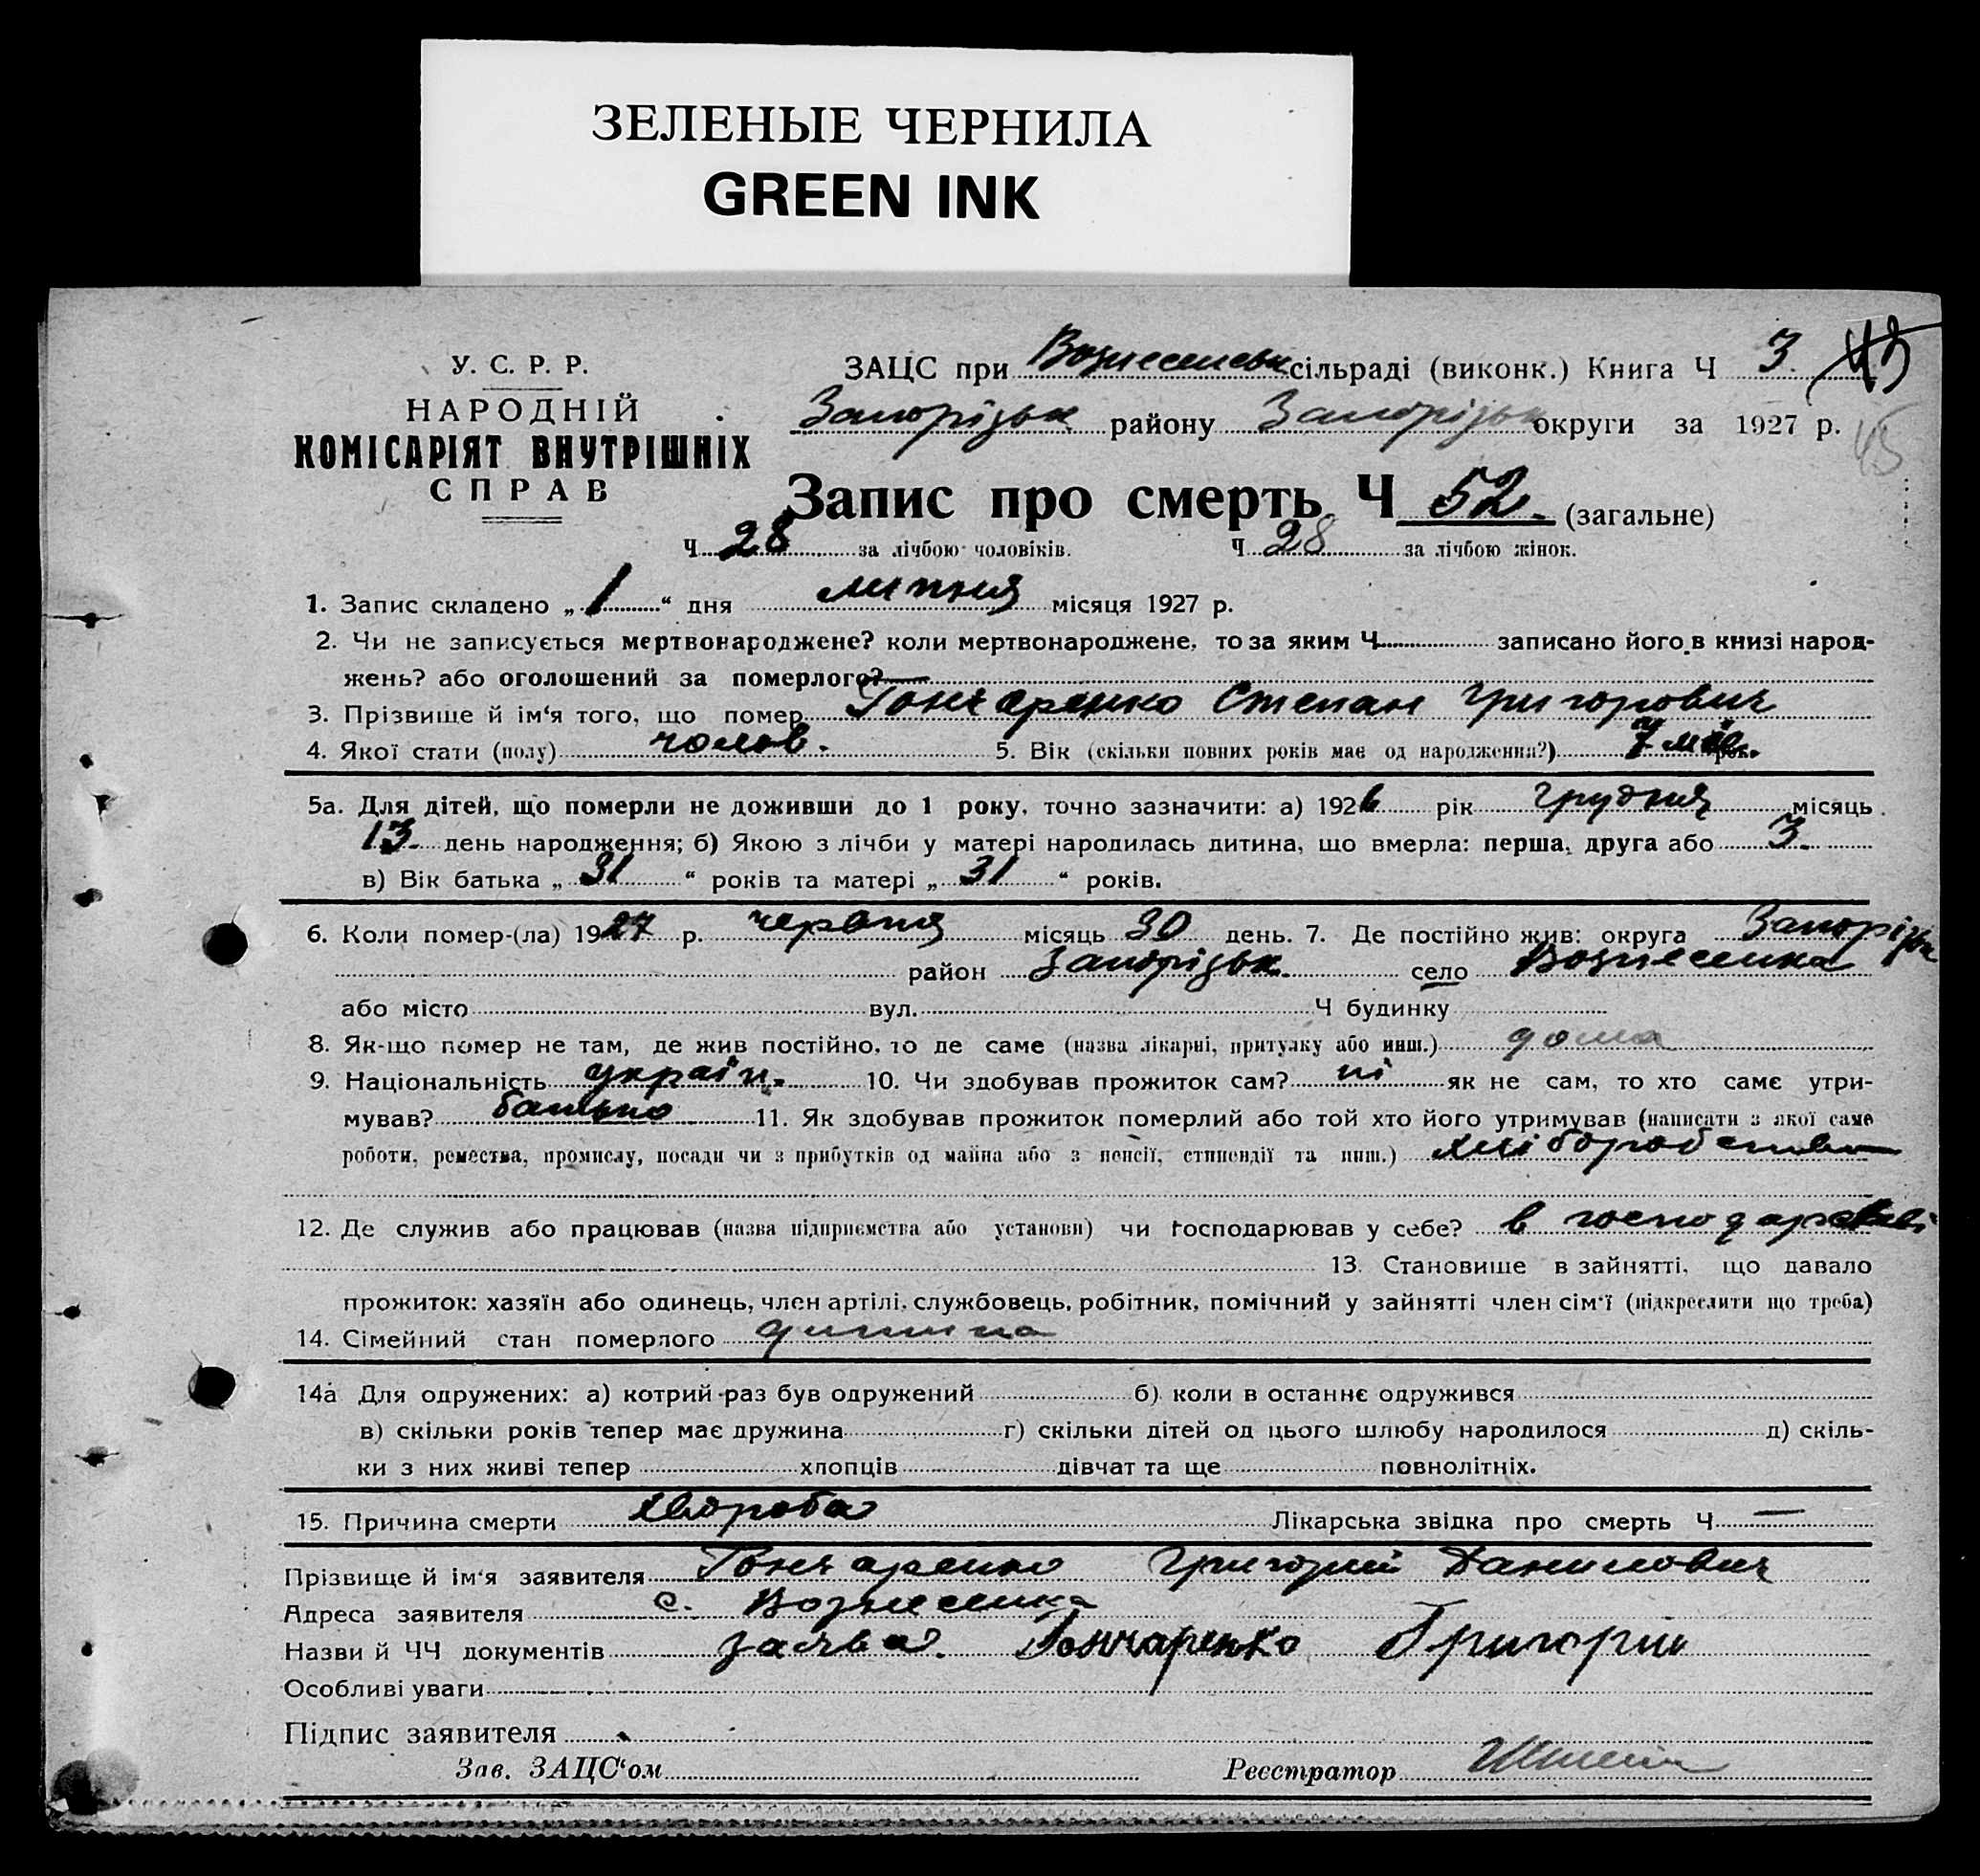 ЗЕЛЕНЫЕ ЧЕРНИЛА
GREEN INK
У. С. Р. Р.
НАРОДНІЙ
КОМІСАРІЯТ ВНУТРІШНІХ
СПРАВ
ЗАЦС при Вознесенськ сільраді (виконк.) Книга Ч 3. 45
Запорізьк району Запорізьк округи за 1927 р.
45
Запис про смерть Ч 52. (загальне)
Ч 28 за лічбою чоловіків. Ч 28 за лічбою жінок.
1. Запис складено „ 1 “ дня липня місяця 1927 р.
2. Чи не записується мертвонароджене? коли мертвонароджене, то за яким Ч записано його в книзі народ-
жень? або оголошений за померлого? —
3. Прізвище й ім‘я того, що помер Гончаренко Степан Григорович
4. Якої стати (полу) чолов. 5. Вік (скільки повних років має од народження?) 7 міс. рок.
5а. Для дітей, що померли не доживши до 1 року, точно зазначити: а) 1926 рік грудня місяць
13. день народження; б) Якою з лічби у матері народилась дитина, що вмерла: перша, друга або 3.
в) Вік батька „ 31 “ років та матері „ 31 “ років.
6. Коли помер-(ла) 1927 р. червня місяць 30 день. 7. Де постійно жив: округа Запорізьк
район Запорізьк. село Вознесенка
або місто вул. Ч будинку
8. Як-що помер не там, де жив постійно, то де саме (назва лікарні, притулку або инш.) дома
9. Національність україн. 10. Чи здобував прожиток сам? ні як не сам, то хто саме утри-
мував? батько 11. Як здобував прожиток померлий або той хто його утримував (написати з якої саме
роботи, ремества, промислу, посади чи з прибутків од майна або з пенсії, стипендії та инш.) хліборобство
12. Де служив або працював (назва підприємства або установи) чи господарював у себе? в господарстві
13. Становише в зайнятті, що давало
прожиток: хазяїн або одинець, член артілі, службовець, робітник, помічний у зайнятті член сім‘ї (підкреслити що треба)
14. Сімейний стан померлого дитина
14а Для одружених: а) котрий раз був одружений б) коли в останнє одружився
в) скільки років тепер має дружина г) скільки дітей од цього шлюбу народилося д) скіль-
ки з них живі тепер хлопців дівчат та ще повнолітніх.
15. Причина смерти хвороба Лікарська звідка про смерть Ч —
Прізвище й ім‘я заявителя Гончаренко Григорий Данилович
Адреса заявителя с. Вознесенка
Назви й ЧЧ документів заява. Гончаренко Григорий
Особливі уваги
Підпис заявителя
Зав. ЗАЦС‘ом Реєстратор